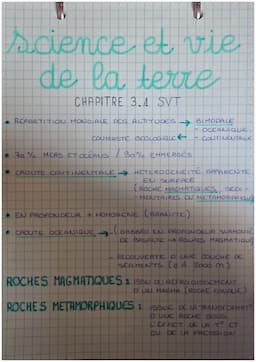 science et vie
de la terre
CHAPITRE 3.1 SVT
• REPARTITION MONDIALE DES ALTITUDES → BIMODALE
- OCEANIQUE
CONTRASTE GEOLOGIQUE ← - CONTINENTALE
• 70% MERS ET OCEANS / 30% EMERGÉS
• CROUTE CONTINENTALE → HETEROGENEITÉ APPARENTE
EN SURFACE
(ROCHES MAGMATIQUES, SEDI-
MENTAIRES OU METAMORPHIQUES)
• EN PROFONDEUR + HOMOGENE (GRANITE)
• CROUTE OCEANIQUE → (GABBRO EN PROFONDEUR SURMONTÉ
DE BASALTE = ROCHES MAGMATIQUES)
- RECOUVERTE D'UNE COUCHE DE
SEDIMENTS
ROCHES MAGMATIQUES : ISSUE DU REFROIDISSEMENT
D'UN MAGMA (ROCHE FONDUE)
ROCHES METAMORPHIQUES : ISSUE DE LA TRANSFORMAT°
D'UNE ROCHE SOUS
L'EFFET DE LA T° ET
OU DE LA PRESSION